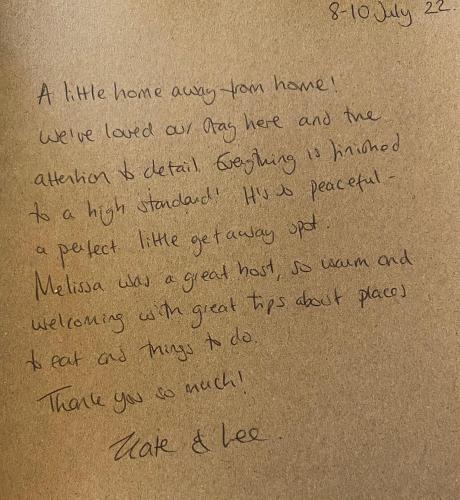 8-10 July 22.
A little home away from home!
We've loved our stay here and the
attention to detail. Everything is finished
to a high standard! It's so peaceful -
a perfect little getaway spot.
Melissa was a great host, so warm and
welcoming with great tips about places
to eat and things to do.
Thank you so much!
Kate & Lee.